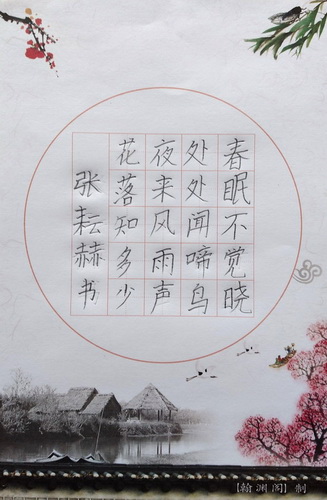 春眠不觉晓
处处闻啼鸟
夜来风雨声
花落知多少
张耘赫书
[翰渊阁]制